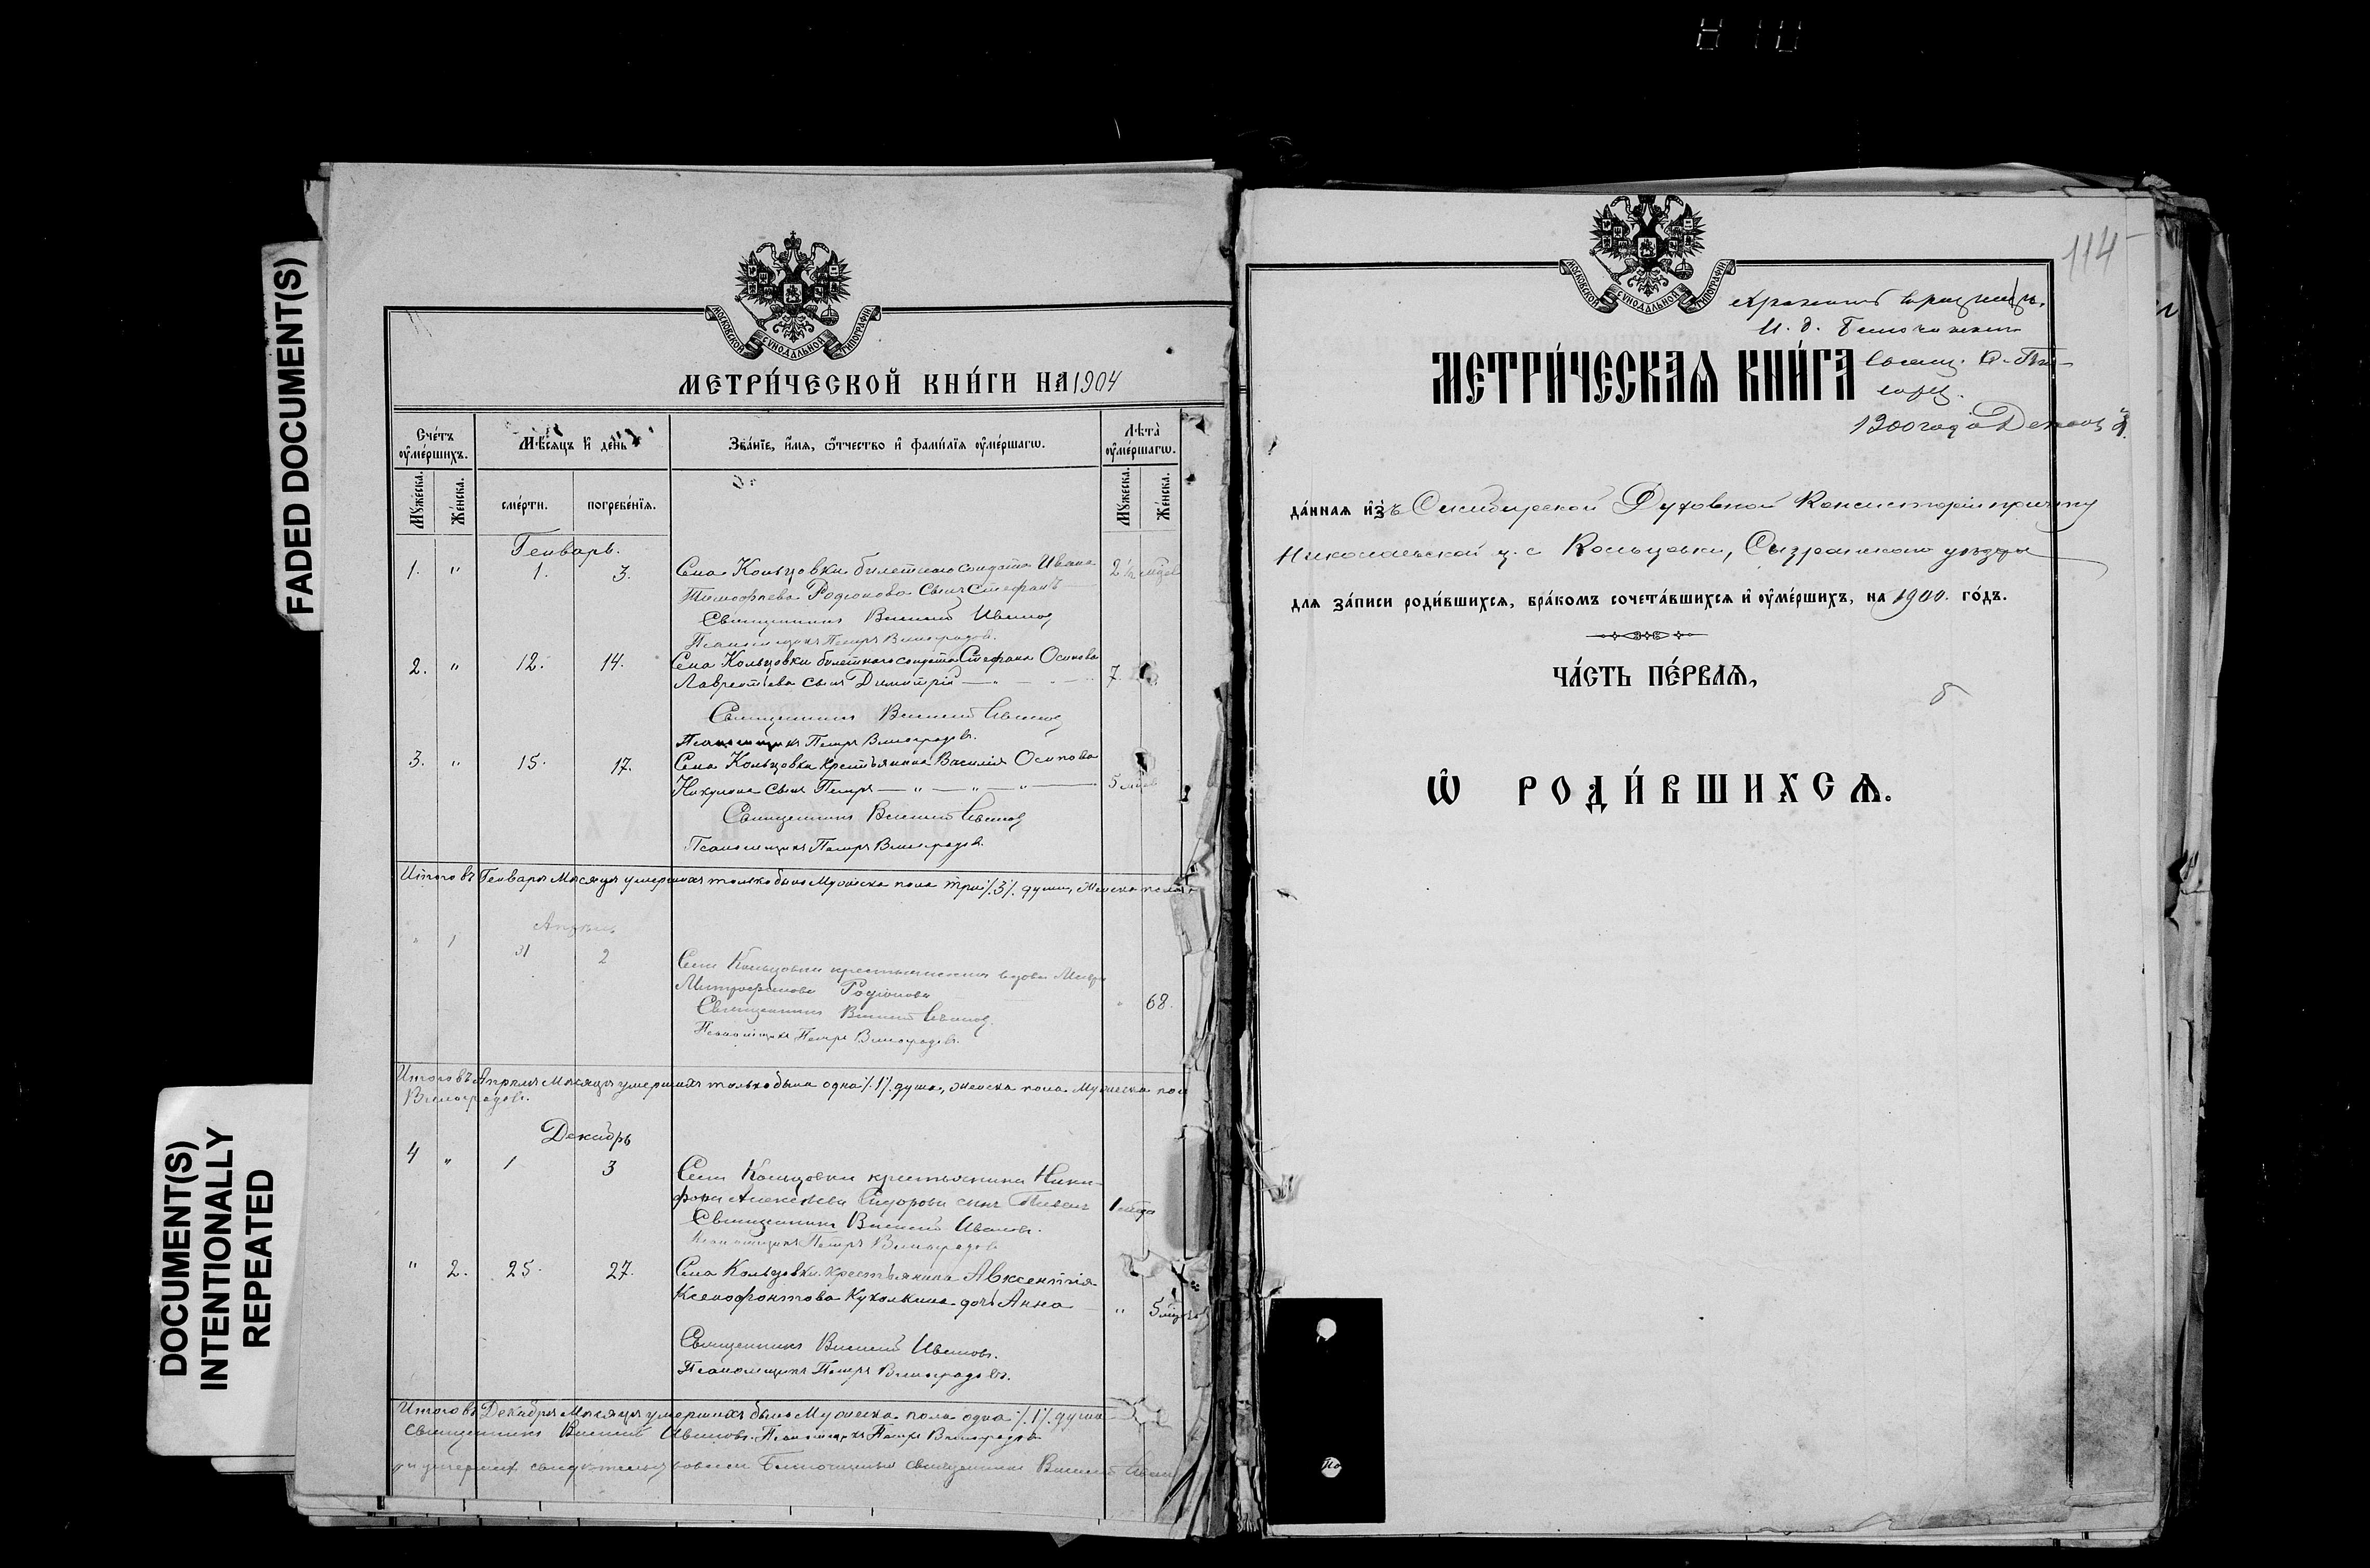 FADED DOCUMENT(S)
DOCUMENT(S)
INTENTIONALLY
REPEATED
МОСКОВСКОЙ СѴНОДАЛЬНОЙ ТИПОГРАФІИ
МЕТРИ́ЧЕСКОЙ КНИ́ГИ НА 1904
Сче́тъ ᲂу҆ме́ршихъ.
Мѣ́сяцъ и҆ де́нь
Зва́нїе, и҆́мя, ѻ҆́тчество и҆ фами́лїя ᲂу҆ме́ршагѡ.
Лѣ́та ᲂу҆ме́ршагѡ.
Мꙋ́жеска.
Же́нска.
сме́рти.
погребе́нїя.
Мꙋ́жеска.
Же́нска.
Генварь.
1. " 1. 3. Села Кольцовки билетнаго солдата Ивана
Тимофеева Родионова сынъ Стефанъ
Священникъ Василий Иванов
Псаломщикъ Петръ Виноградовъ.
2. " 12. 14. Села Кольцовки билетнаго солдата Стефана Осипова
Лаврентіева сынъ Димитрій 7.
Священникъ Василий Иванов
Псаломщикъ Петръ Виноградовъ.
3. " 15. 17. Села Кольцовки крестьянина Василія Осипова
Никулина сынъ Петръ — " — " — " — 5
Священникъ Василий Иванов
Псаломщикъ Петръ Виноградовъ.
Итого въ Генваре Месяце умершихъ только было Мужеска пола три ٪3٪ души, Женска пола
Апрель
" 1 31 2
Села Кольцовки крестьянская вдова Мавра
Митрофанова Родионова " 68.
Священникъ Василий Иванов.
Псаломщикъ Петръ Виноградовъ.
Итого въ Апреле Месяце умершихъ только была одна ٪1٪ душа, женска пола. Мужеска пол
Виноградовъ.
Декабрь
4 " 1 3
Села Кольцовки крестьянина Ники-
фора Алексеева Сидорова сынъ Павелъ 1
Священникъ Василий Ивановъ.
Псаломщикъ Петръ Виноградовъ
" 2. 25. 27. Села Кольцовки крестьянина Авксентія
Ксенофонтова Кухолкина дочь Анна " 5
Священникъ Василий Ивановъ.
Псаломщикъ Петръ Виноградовъ.
Итого въ Декабре Месяце умершихъ было Мужеска пола одна ٪1٪ душа
священникъ Василий Ивановъ. Псаломщикъ Петръ Виноградовъ
священникъ Василий
МОСКОВСКОЙ СѴНОДАЛЬНОЙ ТИПОГРАФІИ
114
И. д.
МЕТРИ́ЧЕСКАЯ КНИ́ГА
1900 года
да́нная и҆зъ Симбирской Духовной Консисторіи причту
Николаевской ц. с. Кольцовки, Сызранского уезда
для за́писи роди́вшихся, бра́комъ сочета́вшихся и҆ ᲂу҆ме́ршихъ, на 1900. го́дъ.
ЧА́СТЬ ПЕ́РВАЯ,
Ѡ҆ РОДИ́ВШИХСЯ.